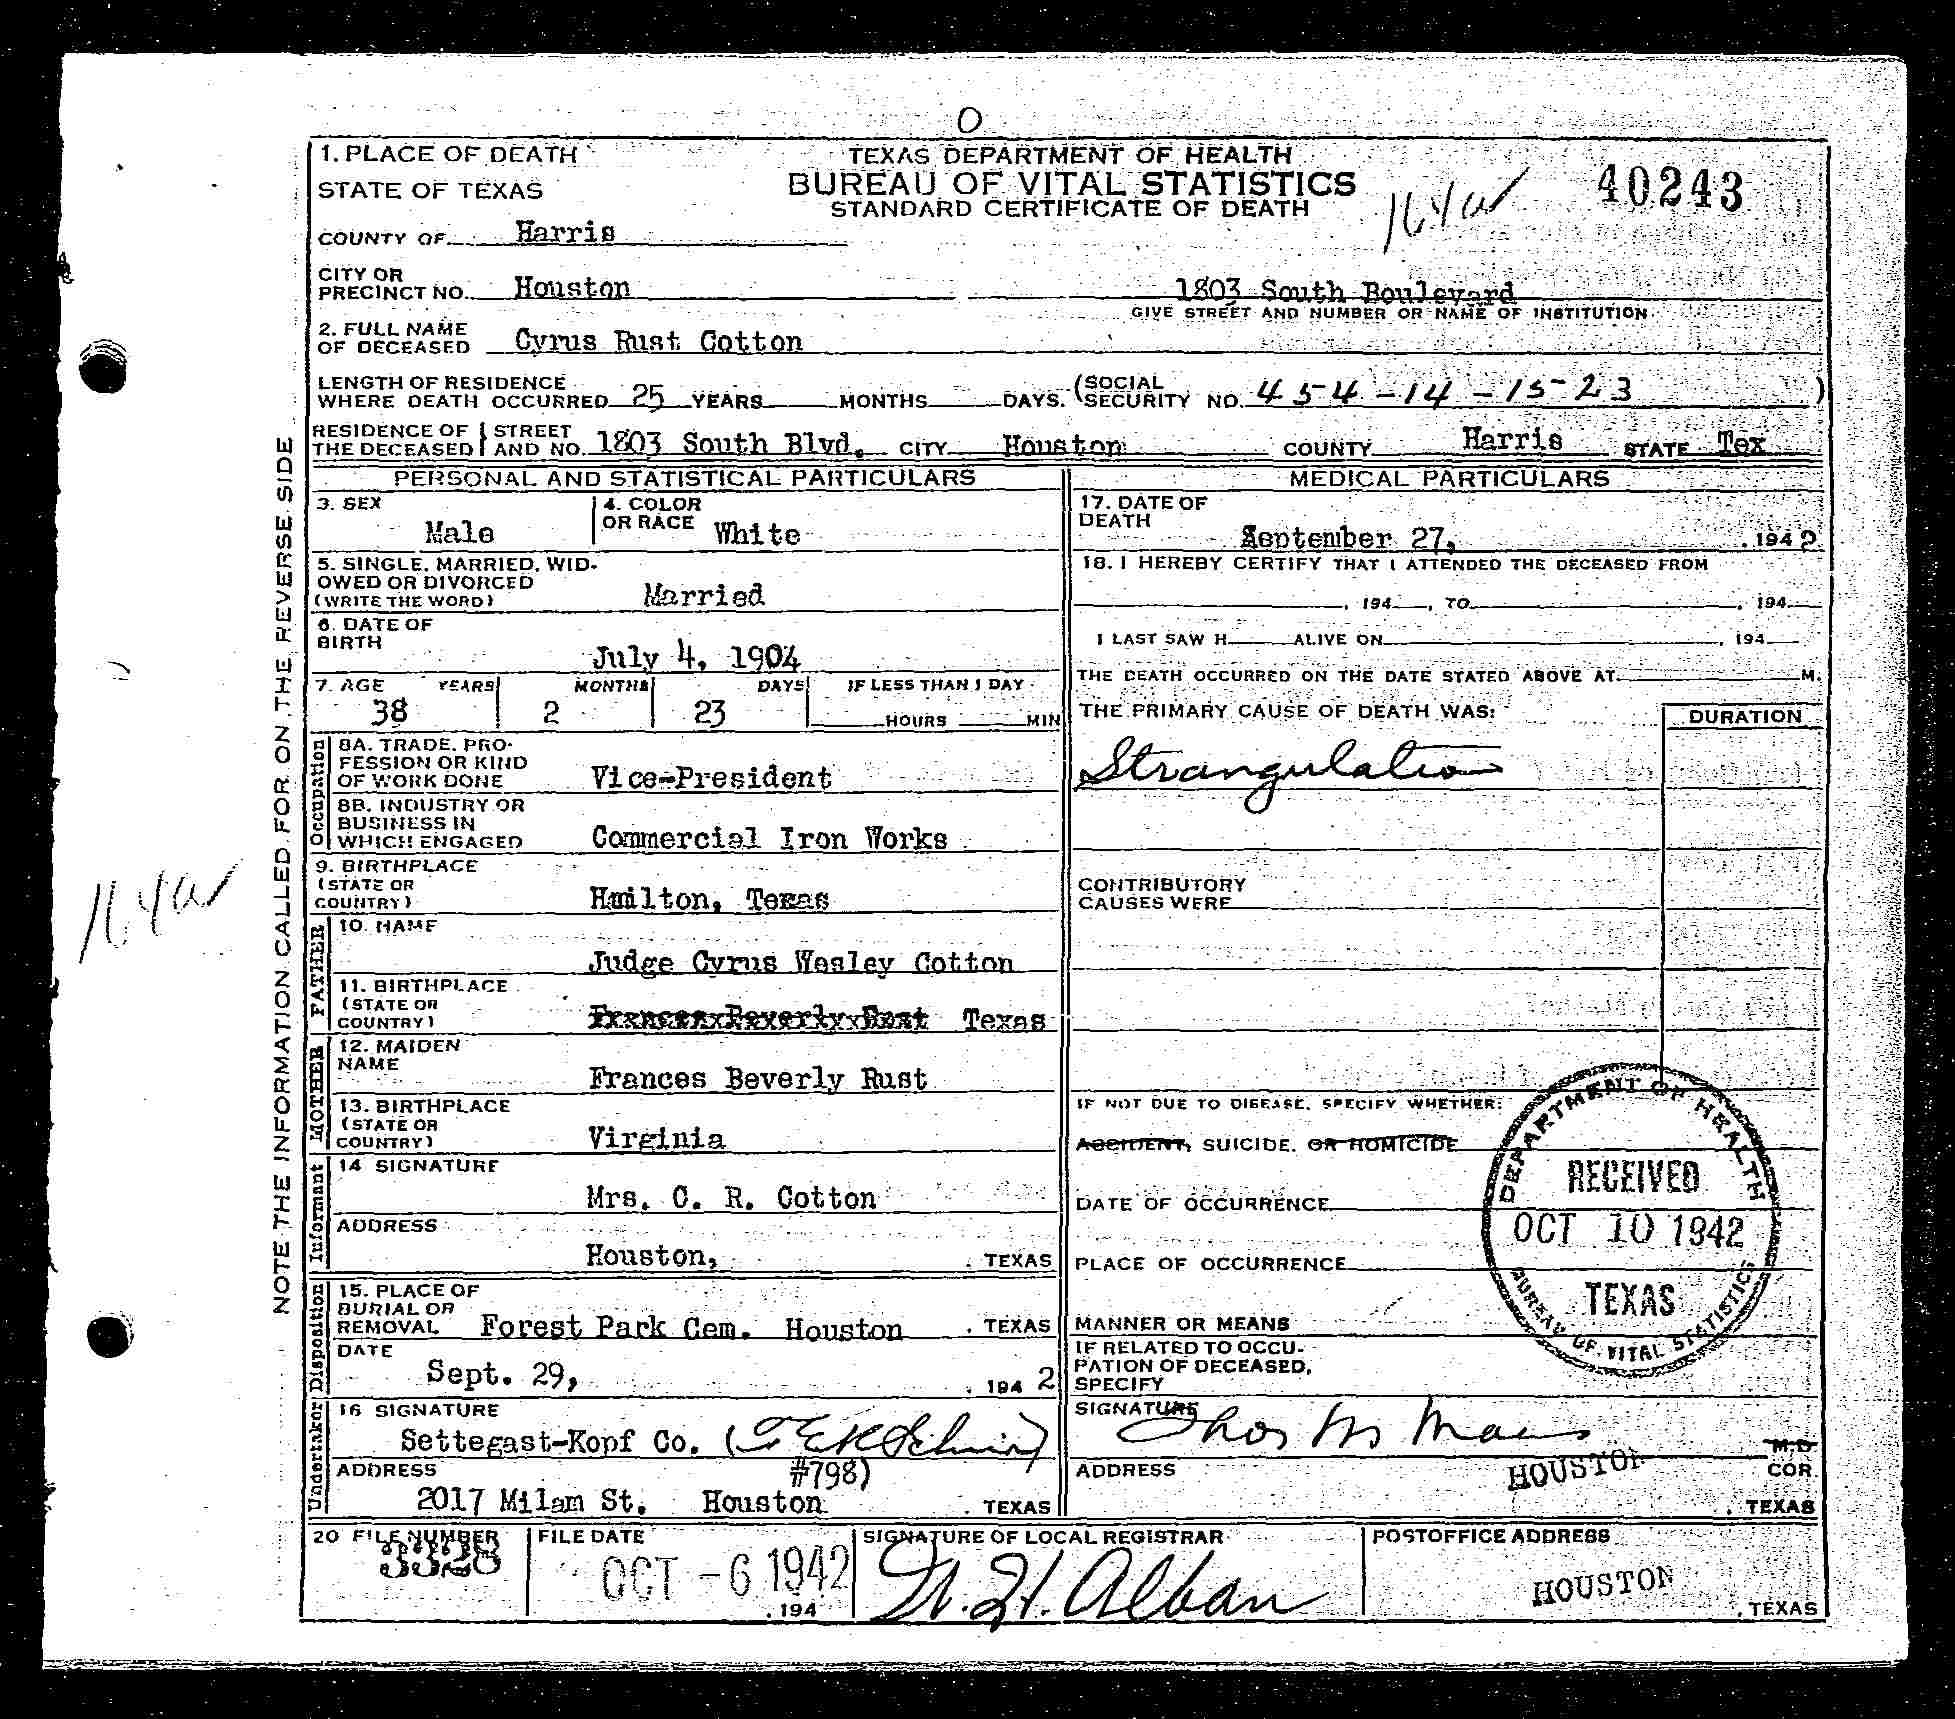 O
1. PLACE OF DEATH
STATE OF TEXAS
TEXAS DEPARTMENT OF HEALTH
BUREAU OF VITAL STATISTICS
STANDARD CERTIFICATE OF DEATH
40243
COUNTY OF Harris
CITY OR
PRECINCT NO. Houston 1803 South Boulevard
GIVE STREET AND NUMBER OR NAME OF INSTITUTION
2. FULL NAME
OF DECEASED Cyrus Rust Cotton
LENGTH OF RESIDENCE
WHERE DEATH OCCURRED 25 YEARS MONTHS DAYS. (SOCIAL SECURITY NO. 454-14-1523)
RESIDENCE OF THE DECEASED } STREET AND NO. 1803 South Blvd. CITY Houston COUNTY Harris STATE Tex
PERSONAL AND STATISTICAL PARTICULARS
3. SEX Male
4. COLOR OR RACE White
5. SINGLE, MARRIED, WID-
OWED OR DIVORCED
(WRITE THE WORD) Married
6. DATE OF
BIRTH July 4, 1904
7. AGE YEARS MONTHS DAYS IF LESS THAN 1 DAY
38 2 23 HOURS MIN
Occupation
8A. TRADE, PRO-
FESSION OR KIND
OF WORK DONE Vice-President
8B. INDUSTRY OR
BUSINESS IN
WHICH ENGAGED Commercial Iron Works
9. BIRTHPLACE
(STATE OR
COUNTRY) Hamilton, Texas
FATHER
10. NAME
Judge Cyrus Wesley Cotton
11. BIRTHPLACE
(STATE OR
COUNTRY) Texas
MOTHER
12. MAIDEN
NAME Frances Beverly Rust
13. BIRTHPLACE
(STATE OR
COUNTRY) Virginia
Informant
14 SIGNATURE
Mrs. C. R. Cotton
ADDRESS
Houston, , TEXAS
Disposition
15. PLACE OF
BURIAL OR
REMOVAL Forest Park Cem. Houston , TEXAS
DATE
Sept. 29, , 194 2
Undertaker
16 SIGNATURE
Settegast-Kopf Co. (
ADDRESS #798)
2017 Milam St. Houston , TEXAS
MEDICAL PARTICULARS
17. DATE OF
DEATH September 27, , 194 2
18. I HEREBY CERTIFY THAT I ATTENDED THE DECEASED FROM
, 194 , TO , 194
I LAST SAW H ALIVE ON , 194
THE DEATH OCCURRED ON THE DATE STATED ABOVE AT M.
THE PRIMARY CAUSE OF DEATH WAS: DURATION
Strangulation
CONTRIBUTORY
CAUSES WERE
IF NOT DUE TO DISEASE, SPECIFY WHETHER:
ACCIDENT, SUICIDE, OR HOMICIDE
DATE OF OCCURRENCE
PLACE OF OCCURRENCE
MANNER OR MEANS
IF RELATED TO OCCU-
PATION OF DECEASED,
SPECIFY
DEPARTMENT OF HEALTH
RECEIVED
OCT 10 1942
TEXAS
BUREAU OF VITAL STATISTICS
SIGNATURE Thos M
M.D
ADDRESS HOUSTON COR.
, TEXAS
20 FILE NUMBER 3328
FILE DATE OCT -6 1942
, 194
SIGNATURE OF LOCAL REGISTRAR
W. H. Alban
POSTOFFICE ADDRESS
HOUSTON
, TEXAS
NOTE THE INFORMATION CALLED FOR ON THE REVERSE SIDE